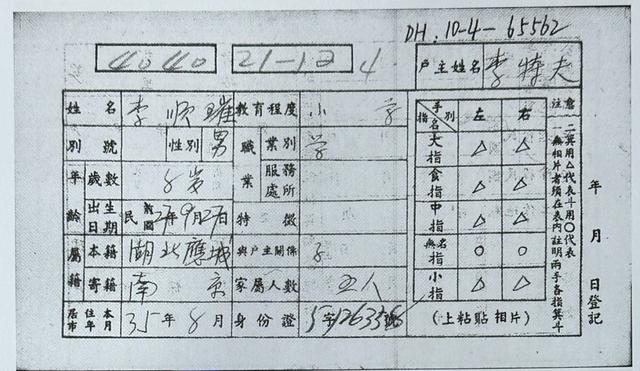 DH: 10-4-65562
4040 21-12 4
戶主姓名 李特夫
姓名 李順璀 教育程度 小學
別號 性別 男 職業 業別 學
年齡 歲數 8歲 服務處所
出生日期 民前國27年9月27日 特徵
屬籍 本籍 湖北應城 與戶主關係 子
寄籍 南京 家屬人數 五人
居住本市年月 35年8月 身份證
手別 指名 左 右
大指 △ △
食指 △ △
中指 △ △
無名指 ○ ○
小指 △ △
(上粘貼相片)
注意
一無相片者須在表內註明兩手各指箕斗
二箕用△代表斗用○代表
年 月 日登記